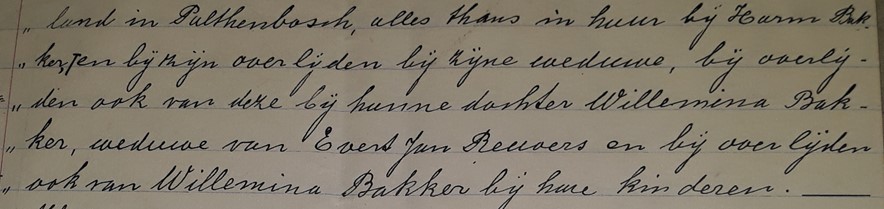 „ land in Palthenbosch, alles thans in huur bij Harm Bak-
„ ker, en bij zijn overlijden bij zijne weduwe, bij overlij-
„ den ook van deze bij hunne dochter Willemina Bak-
„ ker, weduwe van Evert Jan Reuvers en bij overlijden
„ ook van Willemina Bakker bij hare kinderen.